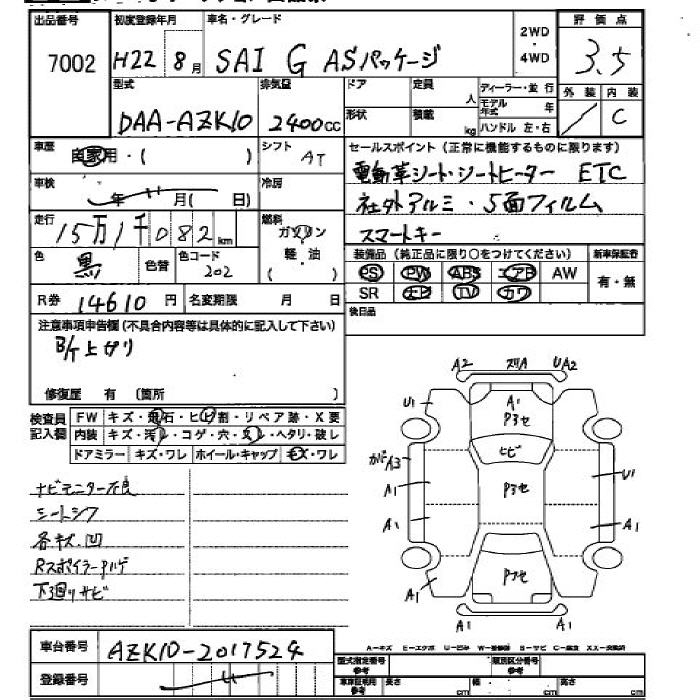 出品番号 初度登録年月 車名・グレード 2WD 評価点
7002 H22 8月 SAI G ASパッケージ ・ 3.5
4WD
外装 内装
型式 排気量 ドア 定員 人 ディーラー・並行
DAA-AZK10 2400cc 形状 積載 kg モデル年式 年 / C
ハンドル 左・右
車歴 自家用・( ) シフト AT セールスポイント(正常に機能するものに限ります)
電動革シート・シートヒーター ETC
車検 年 月( 日) 冷房 社外アルミ・5面フィルム
走行 15万1千082km 燃料 ガソリン・軽油 ( ) スマートキー
色 黒 色替 色コード 202 装備品(純正品に限り○をつけてください) 新車保証書
PS PW ABS エアB AW 有・無
R券 14610円 名変期限 月 日 SR ナビ TV カワ
後日品
注意事項申告欄(不具合内容等は具体的に記入して下さい)
B/T上ガリ
修復歴 有 (箇所 )
A2 ズリA UA2
検査員記入欄 FW キズ・飛石・ヒビ割・リペア跡・X要 U1 A1 P3セ
内装 キズ・汚レ・コゲ・穴・スレ・ヘタリ・破レ ヒビ
ドアミラー キズ・ワレ ホイール・キャップ キズ・ワレ A3
ナビモニター不良 A1 P3セ U1
シートシワ
各キズ.凹 A1 A1
Rスポイラーハゲ
下廻リサビ A1
A1 A1
車台番号 AZK10-2017524 A=キズ E=エクボ U=凹み W=補修跡 S=サビ C=腐食 XX=交換済
登録番号 型式指定番号 参考 類別区分番号 参考
車車証明用 参考 長さ cm 幅 cm 高さ cm